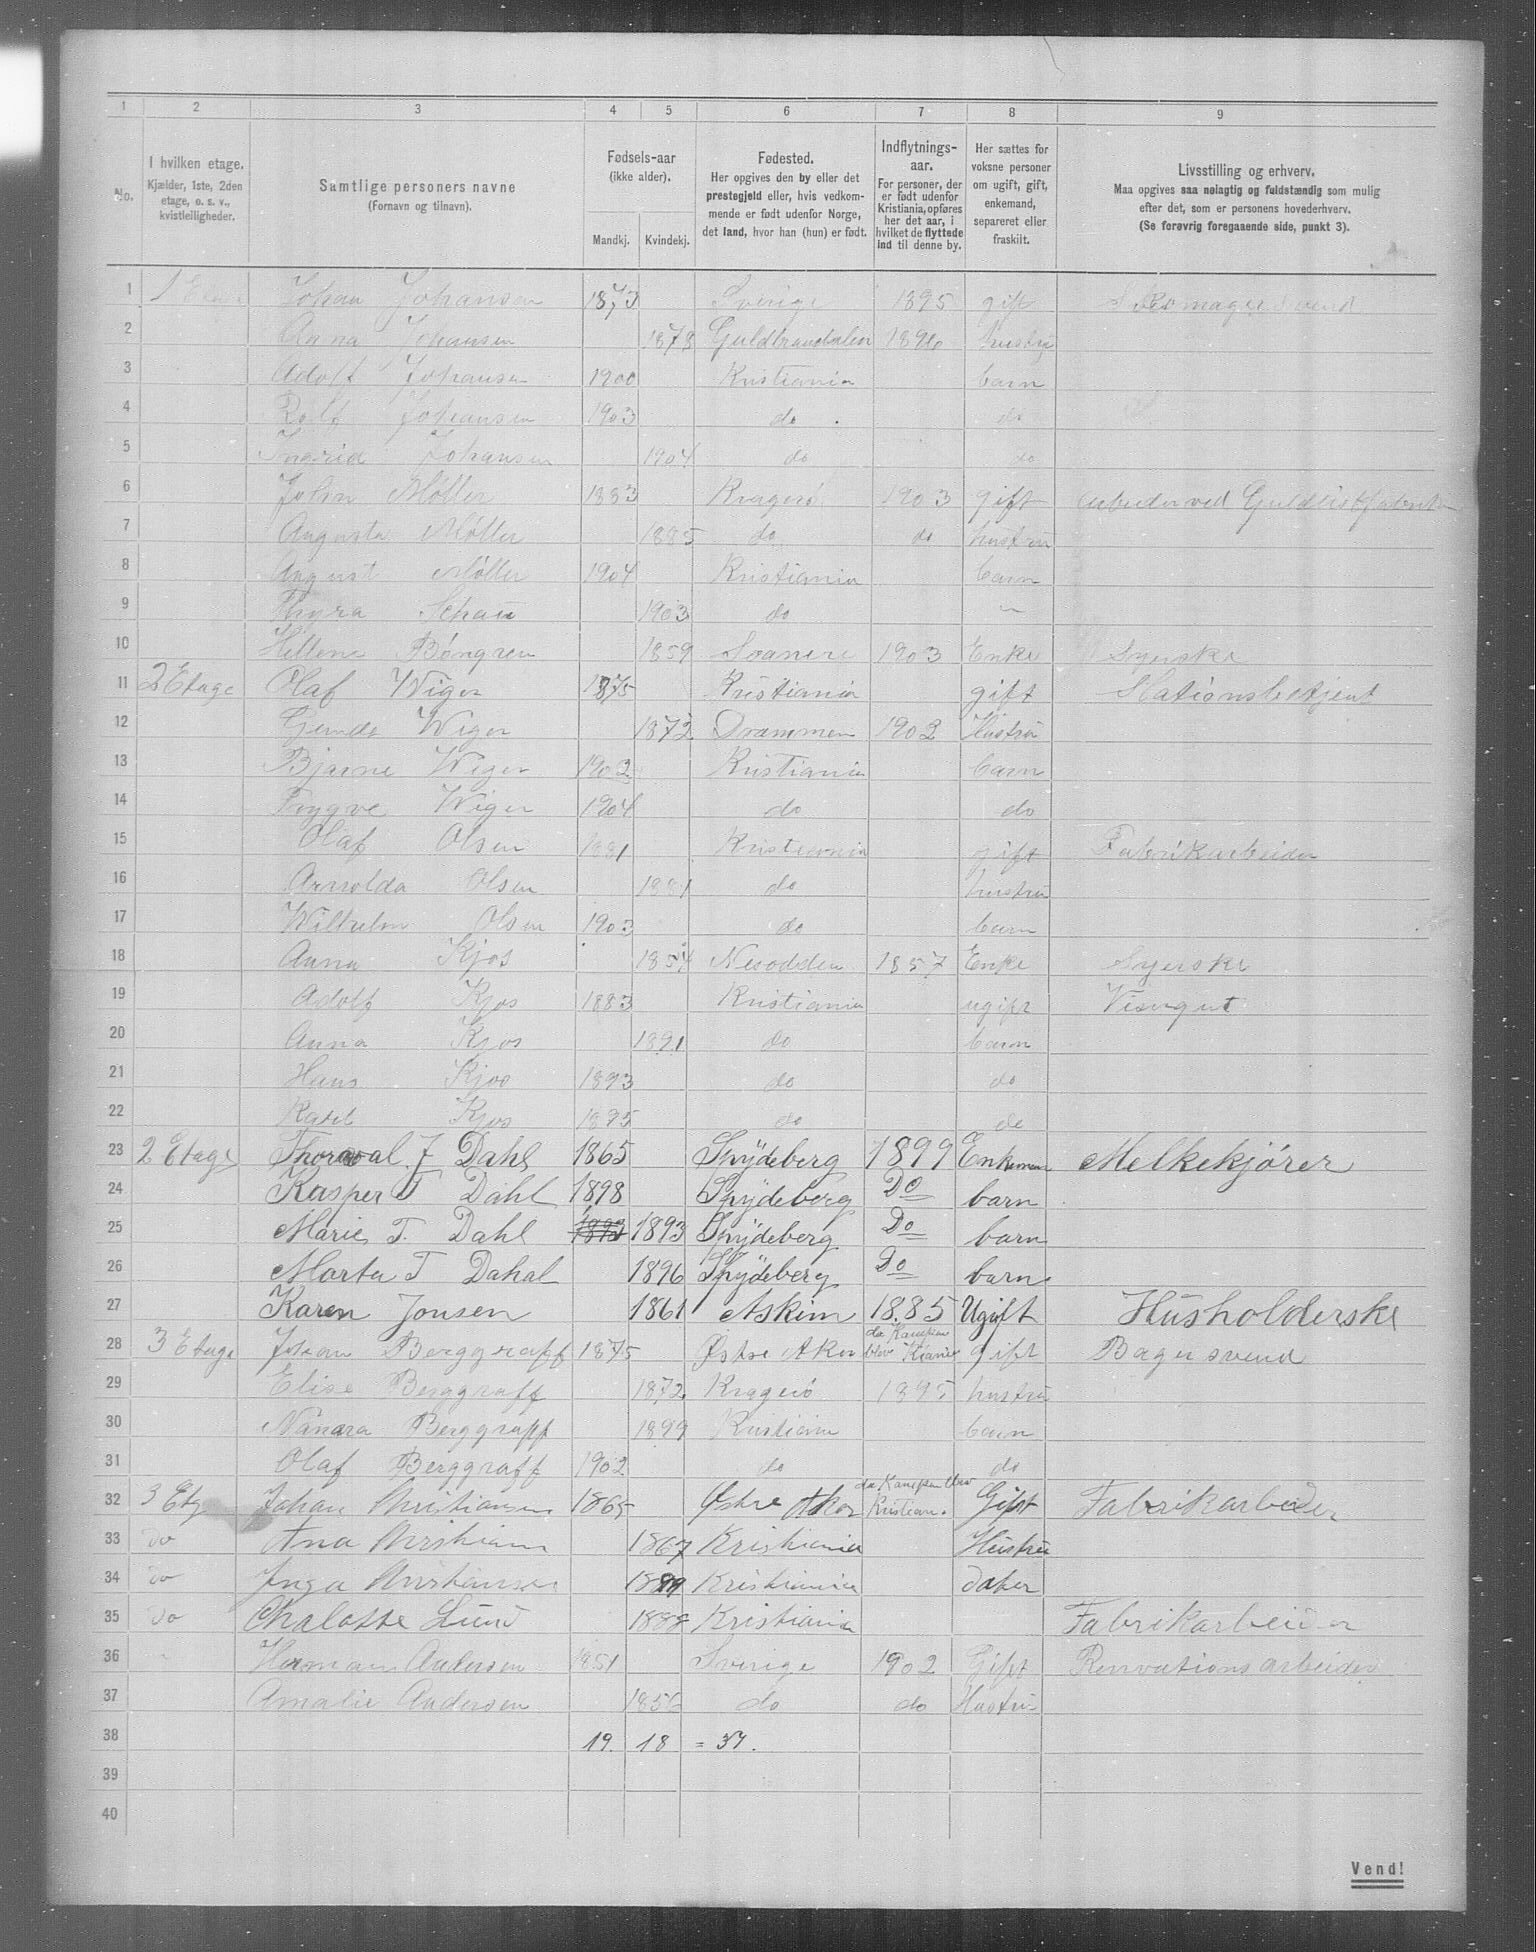 1 2 3 4 5 6 7 8 9
No.
I hvilken etage.
Kjælder, 1ste, 2den
etage, o. s. v.,
kvistleiligheder.
Samtlige personers navne
(Fornavn og tilnavn).
Fødsels-aar
(ikke alder).
Mandkj. Kvindekj.
Fødested.
Her opgives den by eller det
prestegjeld eller, hvis vedkom-
mende er født udenfor Norge,
det land, hvor han (hun) er født.
Indflytnings-
aar.
For personer, der
er født udenfor
Kristiania, opføres
her det aar, i
hvilket de flyttede
ind til denne by.
Her sættes for
voksne personer
om ugift, gift,
enkemand,
separeret eller
fraskilt.
Livsstilling og erhverv.
Maa opgives saa nøiagtig og fuldstændig som mulig
efter det, som er personens hovederhverv.
(Se forøvrig foregaaende side, punkt 3).
1 1 Etage Johan Johansen 1873 Sverige 1895 gift Skomagersvend
2 Anna Johansen 1873 Guldbrandsdalen 1896 hustru
3 Adolf Johansen 1900 Kristiania barn
4 Rolf Johansen 1903 do do
5 Ingrid Johansen 1904 do do
6 John Møller 1883 Kragerø 1903 gift Arbeider ved Guldlistfabrik
7 Augusta Møller 1885 do do hustru
8 August Møller 1904 Kristiania barn
9 Thyra Schau 1903 do "
10 Hellene 1859 1903 Enke Syerske
11 2 Etage Olaf Wiger 1875 Kristiania gift Stationsbetjent
12 Wiger 1872 Drammen 1902 Hustru
13 Bjarne Wiger 1902 Kristiania barn
14 Trygve Wiger 1904 do do
15 Olaf Olsen 1881 Kristiania gift Fabrikarbeider
16 Arnolda Olsen 1881 do hustru
17 Wilhelm Olsen 1903 do barn
18 Anna Kjos 1854 Nesodden 1857 Enke Syerske
19 Adolf Kjos 1883 Kristiania ugift Visergut
20 Anna Kjos 1891 do barn
21 Hans Kjos 1893 do do
22 Karl Kjos 1895 do do
23 2 Etage Thorvval J Dahl 1865 Spydeberg 1899 Enkeman Melkekjører
24 Kasper T Dahl 1898 Spydeberg Do barn
25 Marie T. Dahl 1893 1893 Spydeberg Do barn
26 Marta T Dahal 1896 Spydeberg Do barn
27 Karen Jonsen 1861 Askim 1885 Ugift Husholderske
28 3 Etage Johan Berggraff 1875 Østre Aker da Kampen blev Kiania gift Bagersvend
29 Elise Berggraff 1872 Kragerø 1895 hustru
30 Nanara Berggraff 1899 Kristiania barn
31 Olaf Berggraff 1902 do do
32 3 Etg Johan Kristiansen 1865 Østre Aker da Kampen blev Kristian. Gift Fabrikarbeider
33 do Ana Kristians 1867 Kristiania Hustru
34 do Inga Kristiansen 1899 Kristiania dater
35 do Chalotte Lund 1888 Kristiania Fabrikarbeider
36 " Herman Andersen 1851 Sverige 1902 Gift Renovationsarbeider
37 Amalie Andersen 1856 do do Hustru
38 19. 18 = 37.
39
40
Vend!